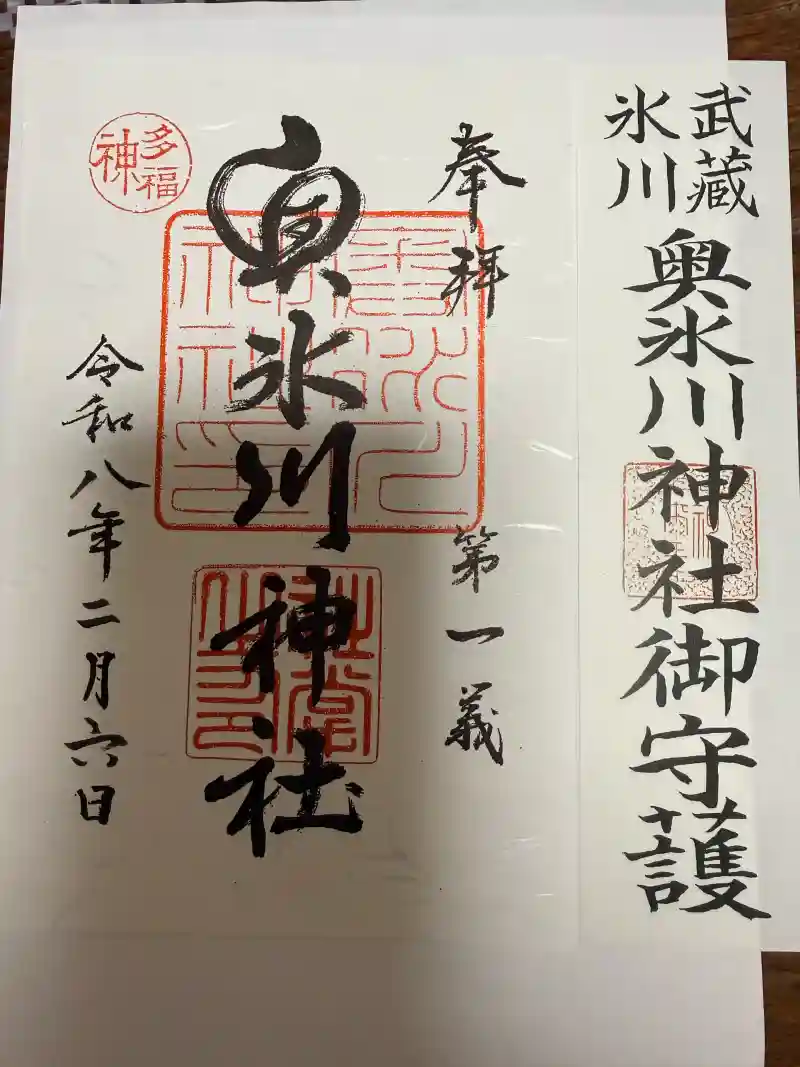 武蔵
氷川
奥氷川神社御守護
奉拝
第一義
奥氷川神社
令和八年二月六日
多福
神